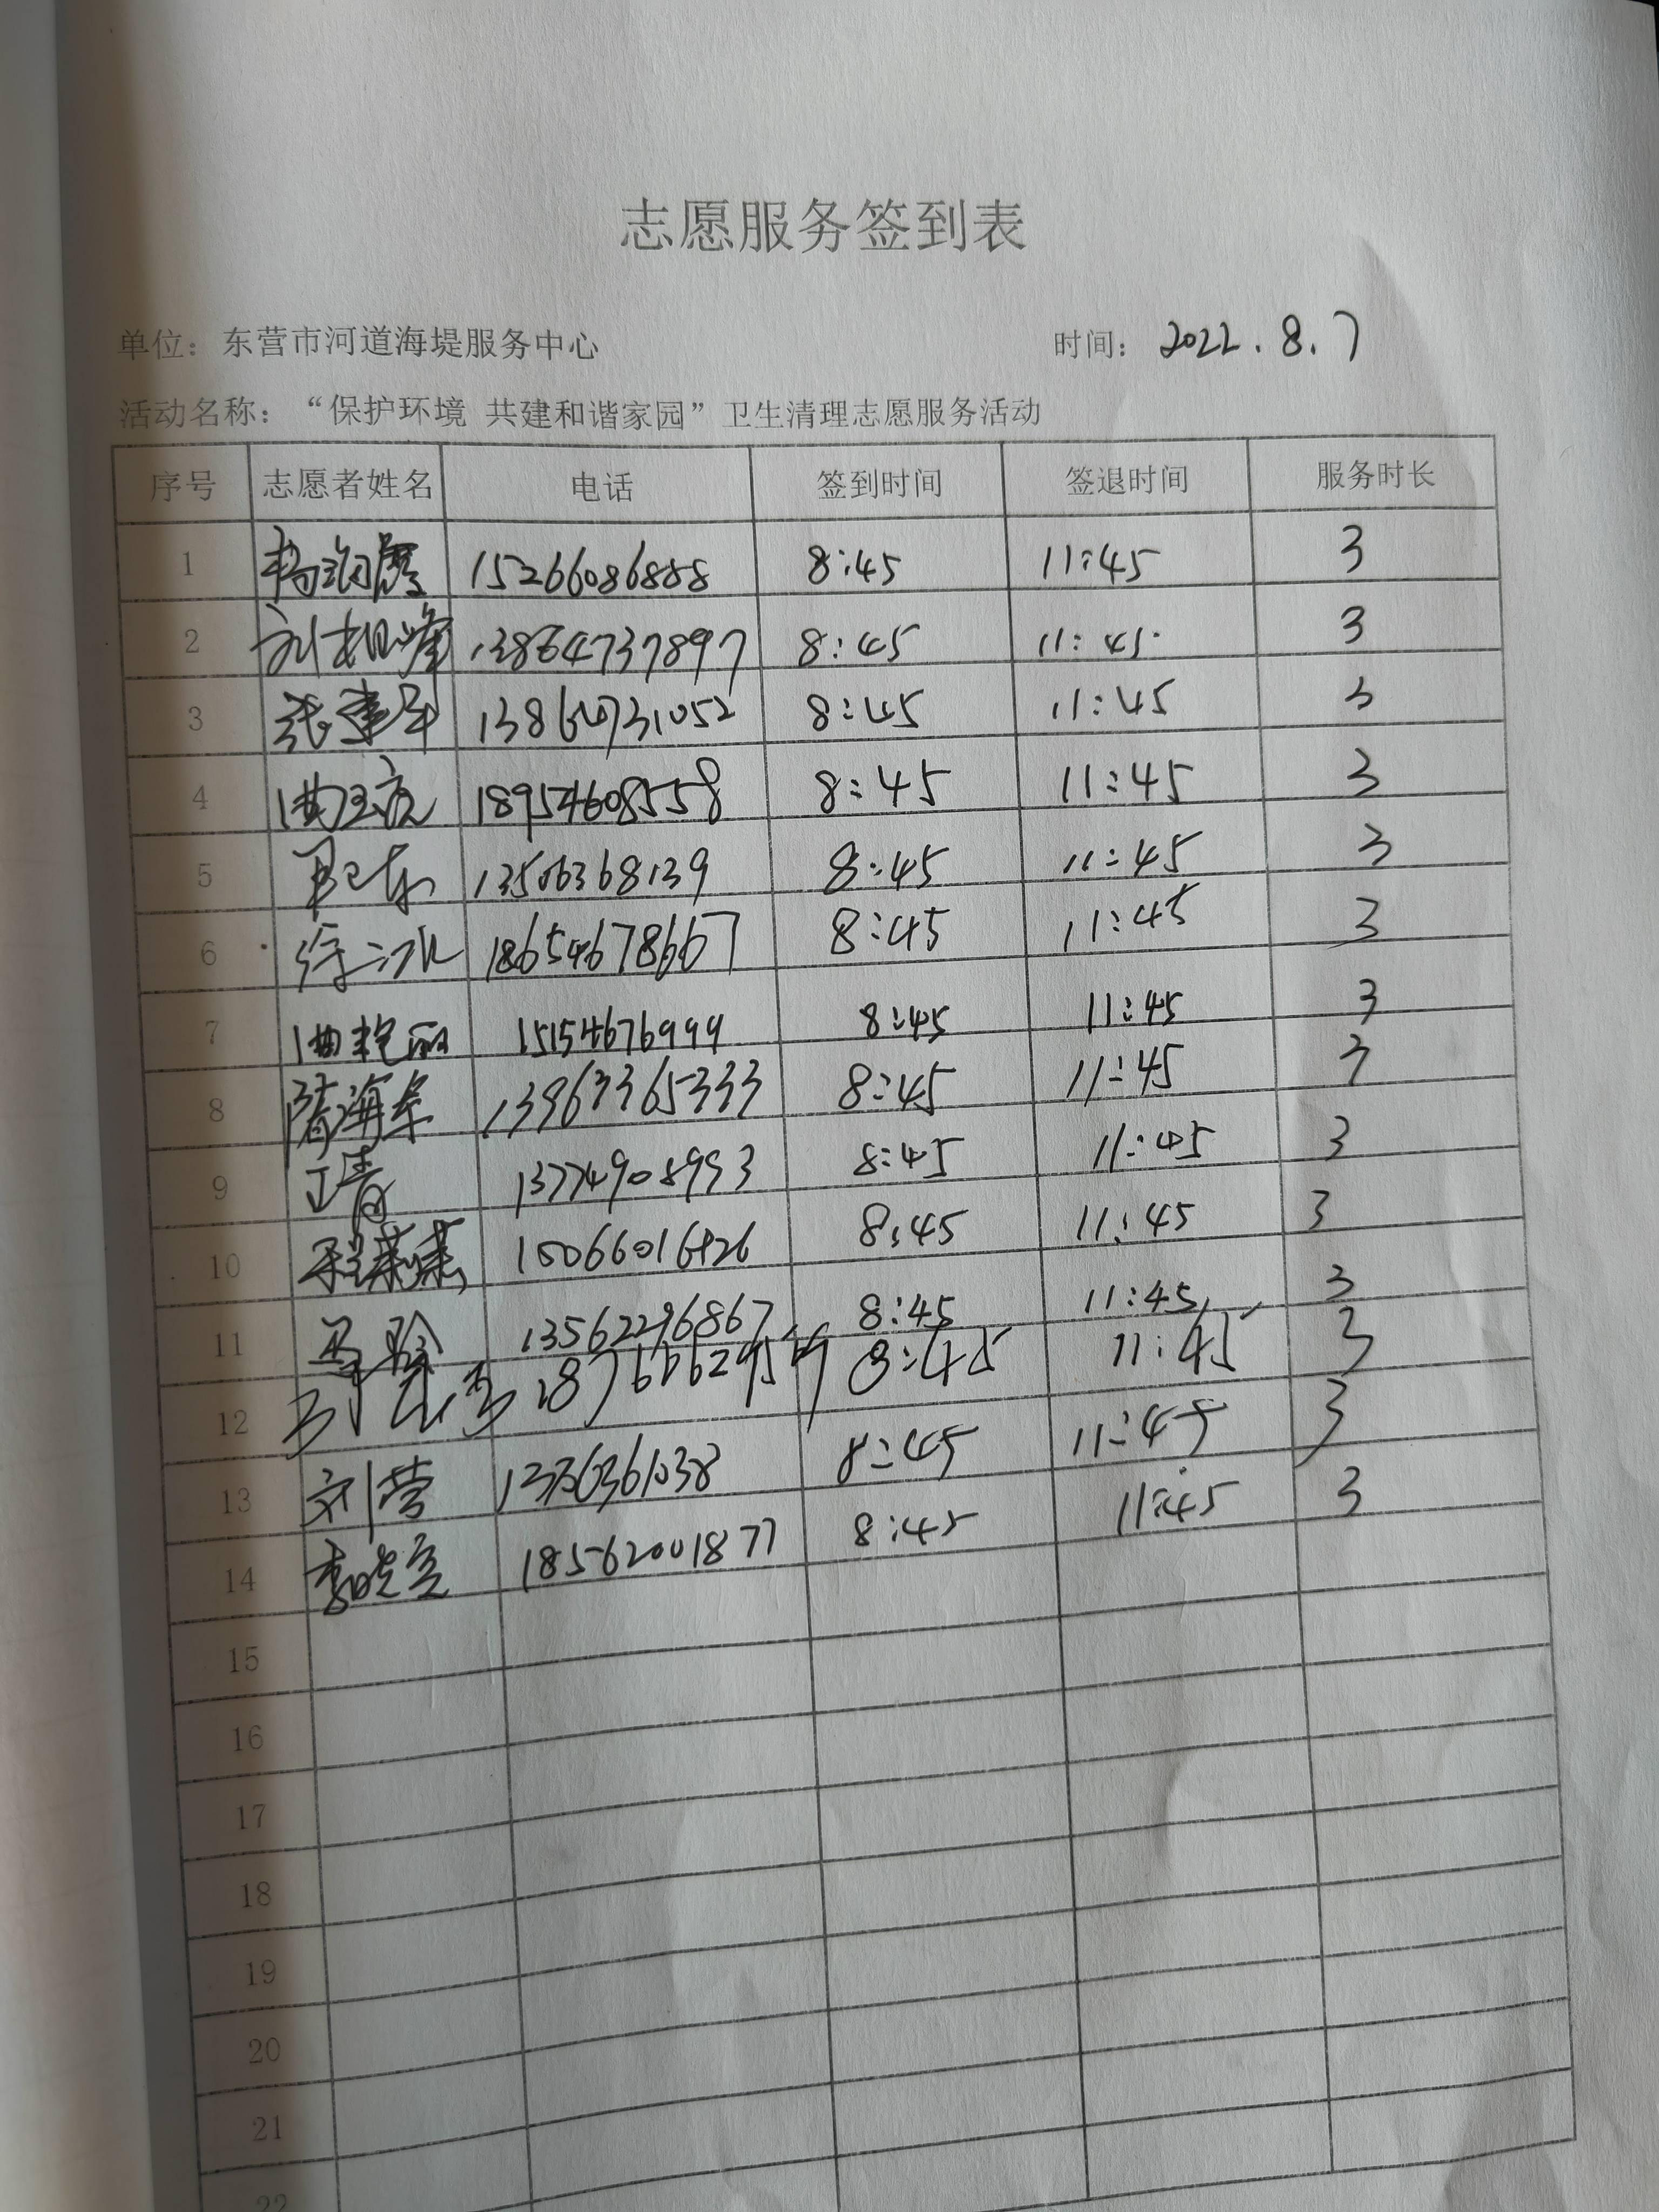 志愿服务签到表
单位：东营市河道海堤服务中心 时间：2022.8.7
活动名称：“保护环境 共建和谐家园”卫生清理志愿服务活动
序号 志愿者姓名 电话 签到时间 签退时间 服务时长
1 15266086888 8:45 11:45 3
2 13864737897 8:45 11:45 3
3 张建军 8:45 11:45 3
4 18954608558 8:45 11:45 3
5 13506368139 8:45 11:45 3
6 18654678667 8:45 11:45 3
7 曲艳丽 15154676999 8:45 11:45 3
8 隋海军 13963365333 8:45 11:45 3
9 丁青 13774908993 8:45 11:45 3
10 8:45 11:45 3
11 13562296867 8:45 11:45 3
12 8:45 11:45 3
13 刘营 8:45 11:45 3
14 18562001877 8:45 11:45 3
15
16
17
18
19
20
21
22